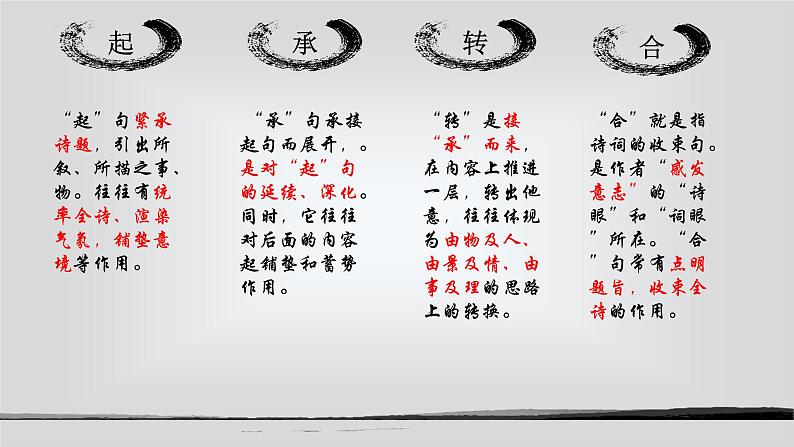 起
“起”句紧承
诗题，引出所
叙、所描之事、
物。往往有统
率全诗、渲染
气氛，铺垫意
境等作用。
承
“承”句承接
起句而展开，。
是对“起”句
的延续、深化。
同时，它往往
对后面的内容
起铺垫和蓄势
作用。
转
“转”是接
“承”而来，
在内容上推进
一层，转出他
意，往往体现
为由物及人、
由景及情、由
事及理的思路
上的转换。
合
“合”就是指
诗词的收束句。
是作者“感发
意志”的“诗
眼”和“词眼
”所在。“合
”句常有点明
题旨，收束全
诗的作用。